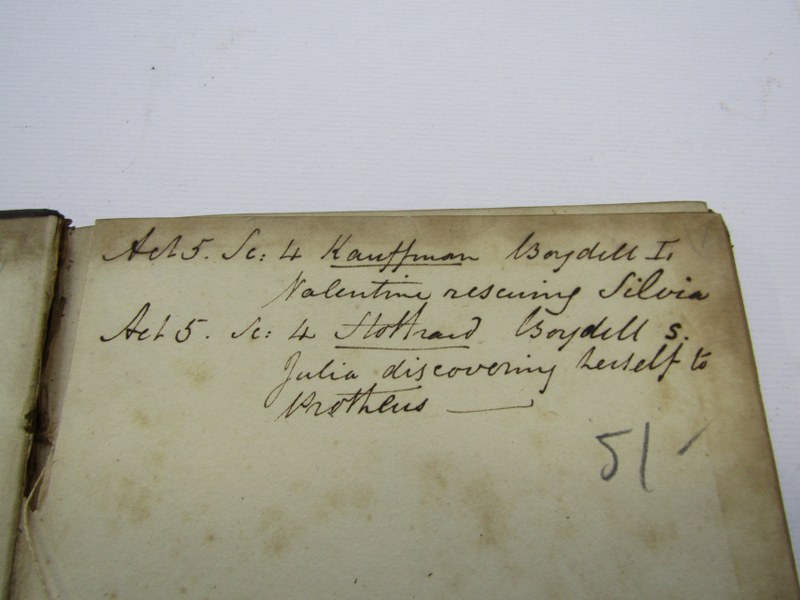 Act 5. Sc: 4 Kauffman Boydell I.
Valentine rescuing Silvia
Act 5. Sc: 4 Stothard Boydell s.
Julia discovering herself to
Protheus
51